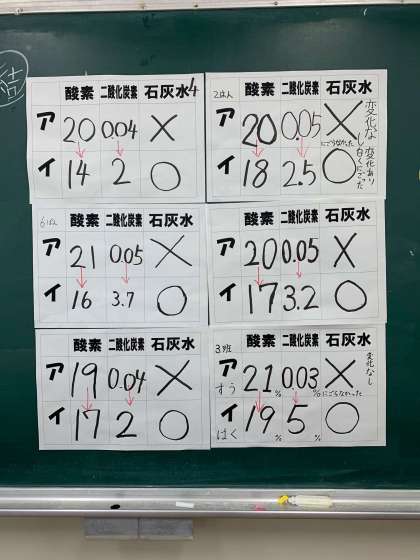 結
酸素 二酸化炭素 石灰水 4
ア 20 0.04 ×
イ 14 2 ○
2はん 酸素 二酸化炭素 石灰水
ア 20 0.05 × 変化なし
にごらなかった
イ 18 2.5 ○ 変化あり
白くにごった
6ぱん 酸素 二酸化炭素 石灰水
ア 21 0.05 ×
イ 16 3.7 ○
酸素 二酸化炭素 石灰水
ア 20 0.05 ×
イ 17 3.2 ○
酸素 二酸化炭素 石灰水
ア 19 0.04 ×
イ 17 2 ○
3班 酸素 二酸化炭素 石灰水
ア 21% 0.03% × 変化なし
すう にごらなかった
イ 19% 5% ○
はく